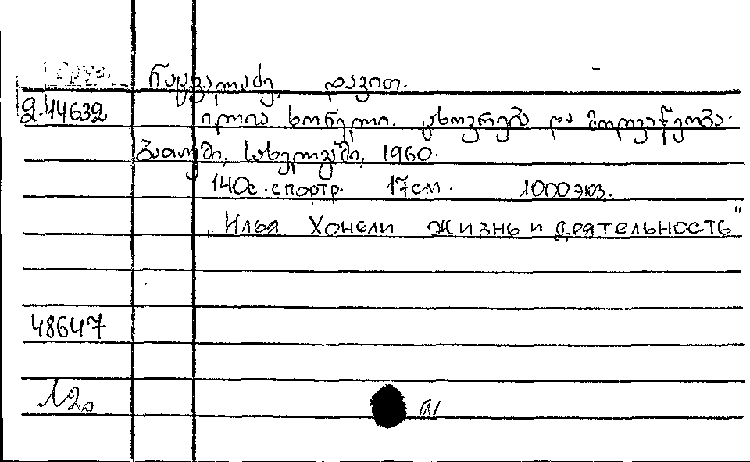 დავით.
2.44632 ილია ხონელი. ცხოვრება და მოღვაწეობა.
ბათუმი, სახელგამი, 1960.
140с. с портр. 17см. 1000 экз.
„Илья Хонели жизнь и деятельность"
48647